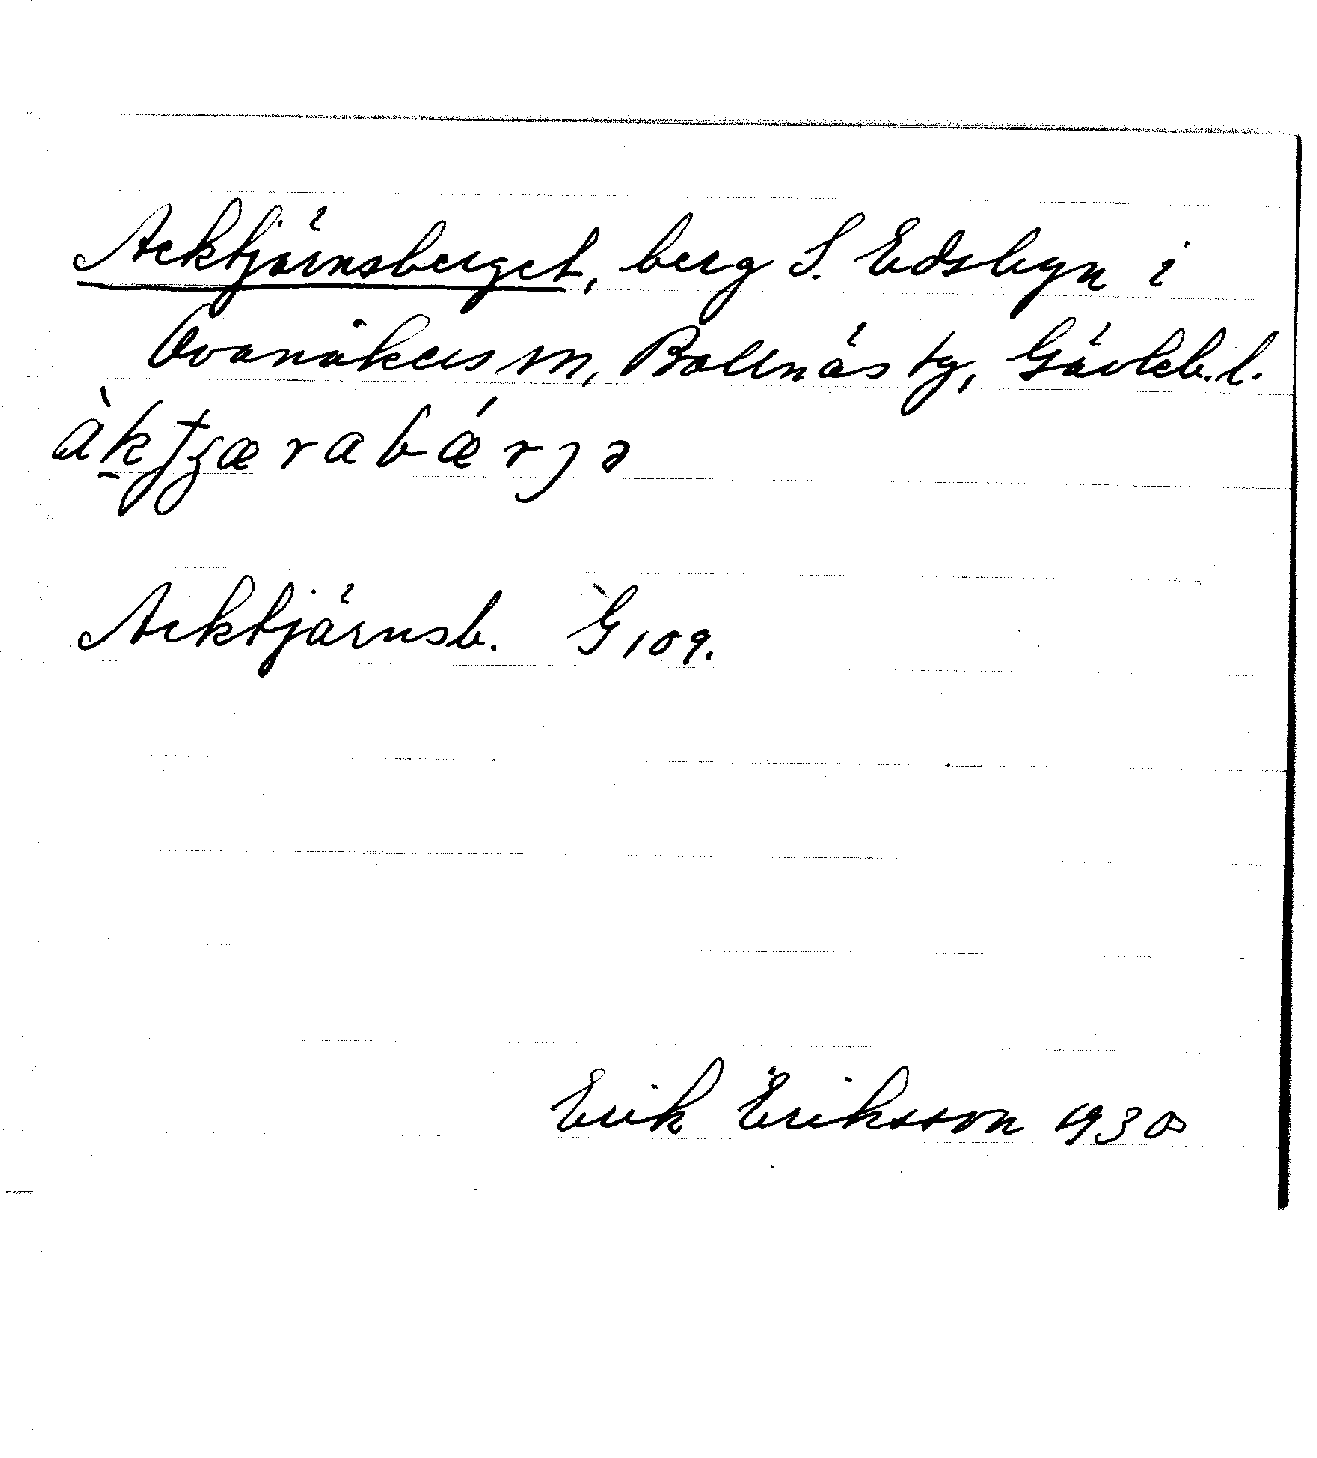 Acktjärnsberget, berg S. Edsbyn i
Ovanåkers sn, Bollnäs tg, Gävleb. l.
àktʒærabǽrjə
Acktjärnsb. G 109.
Erik Eriksson 1930